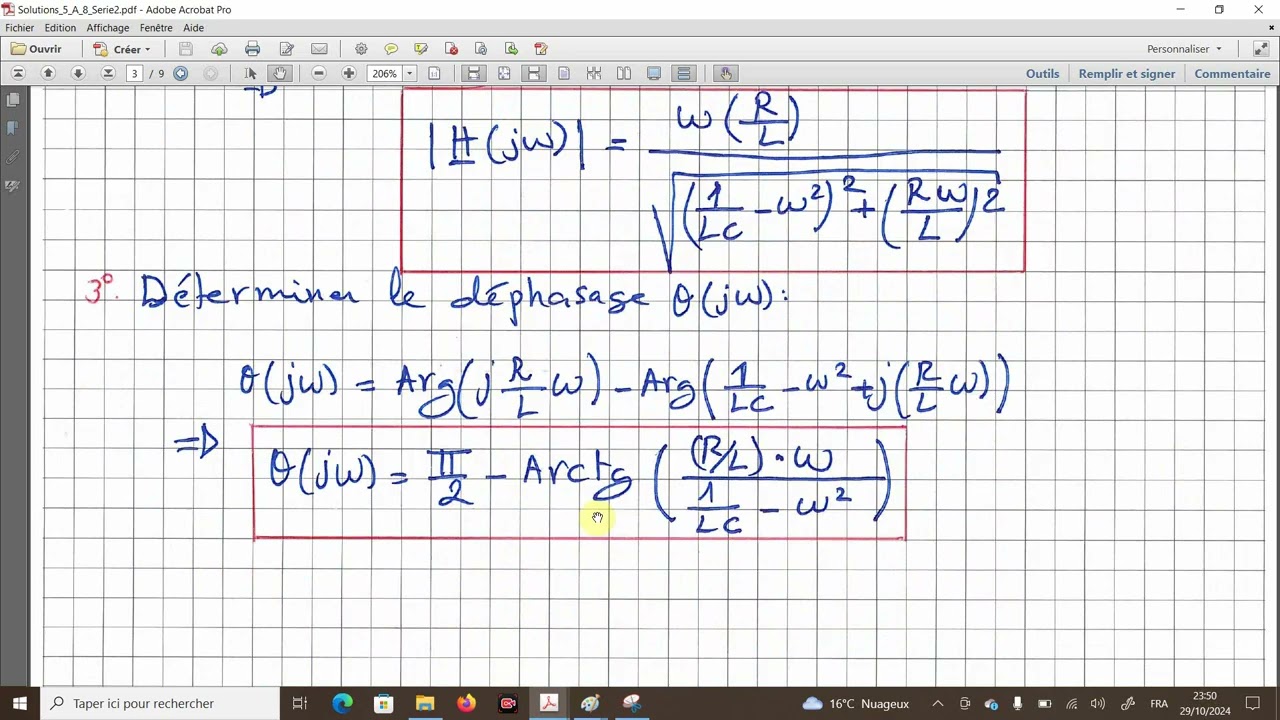 Solutions_5_A_8_Serie2.pdf - Adobe Acrobat Pro
Fichier Edition Affichage Fenêtre Aide
Ouvrir Créer Personnaliser
3 / 9 206% Outils Remplir et signer Commentaire
|H(jω)| = ω(R/L) / √((1/LC - ω²)² + (Rω/L)²)
3°. Déterminer le déphasage θ(jω):
θ(jω) = Arg(j R/L ω) - Arg(1/LC - ω² + j(R/L ω))
⇒ θ(jω) = π/2 - Arctg ((R/L)·ω / (1/LC - ω²))
Taper ici pour rechercher 16°C Nuageux FRA 23:50
29/10/2024